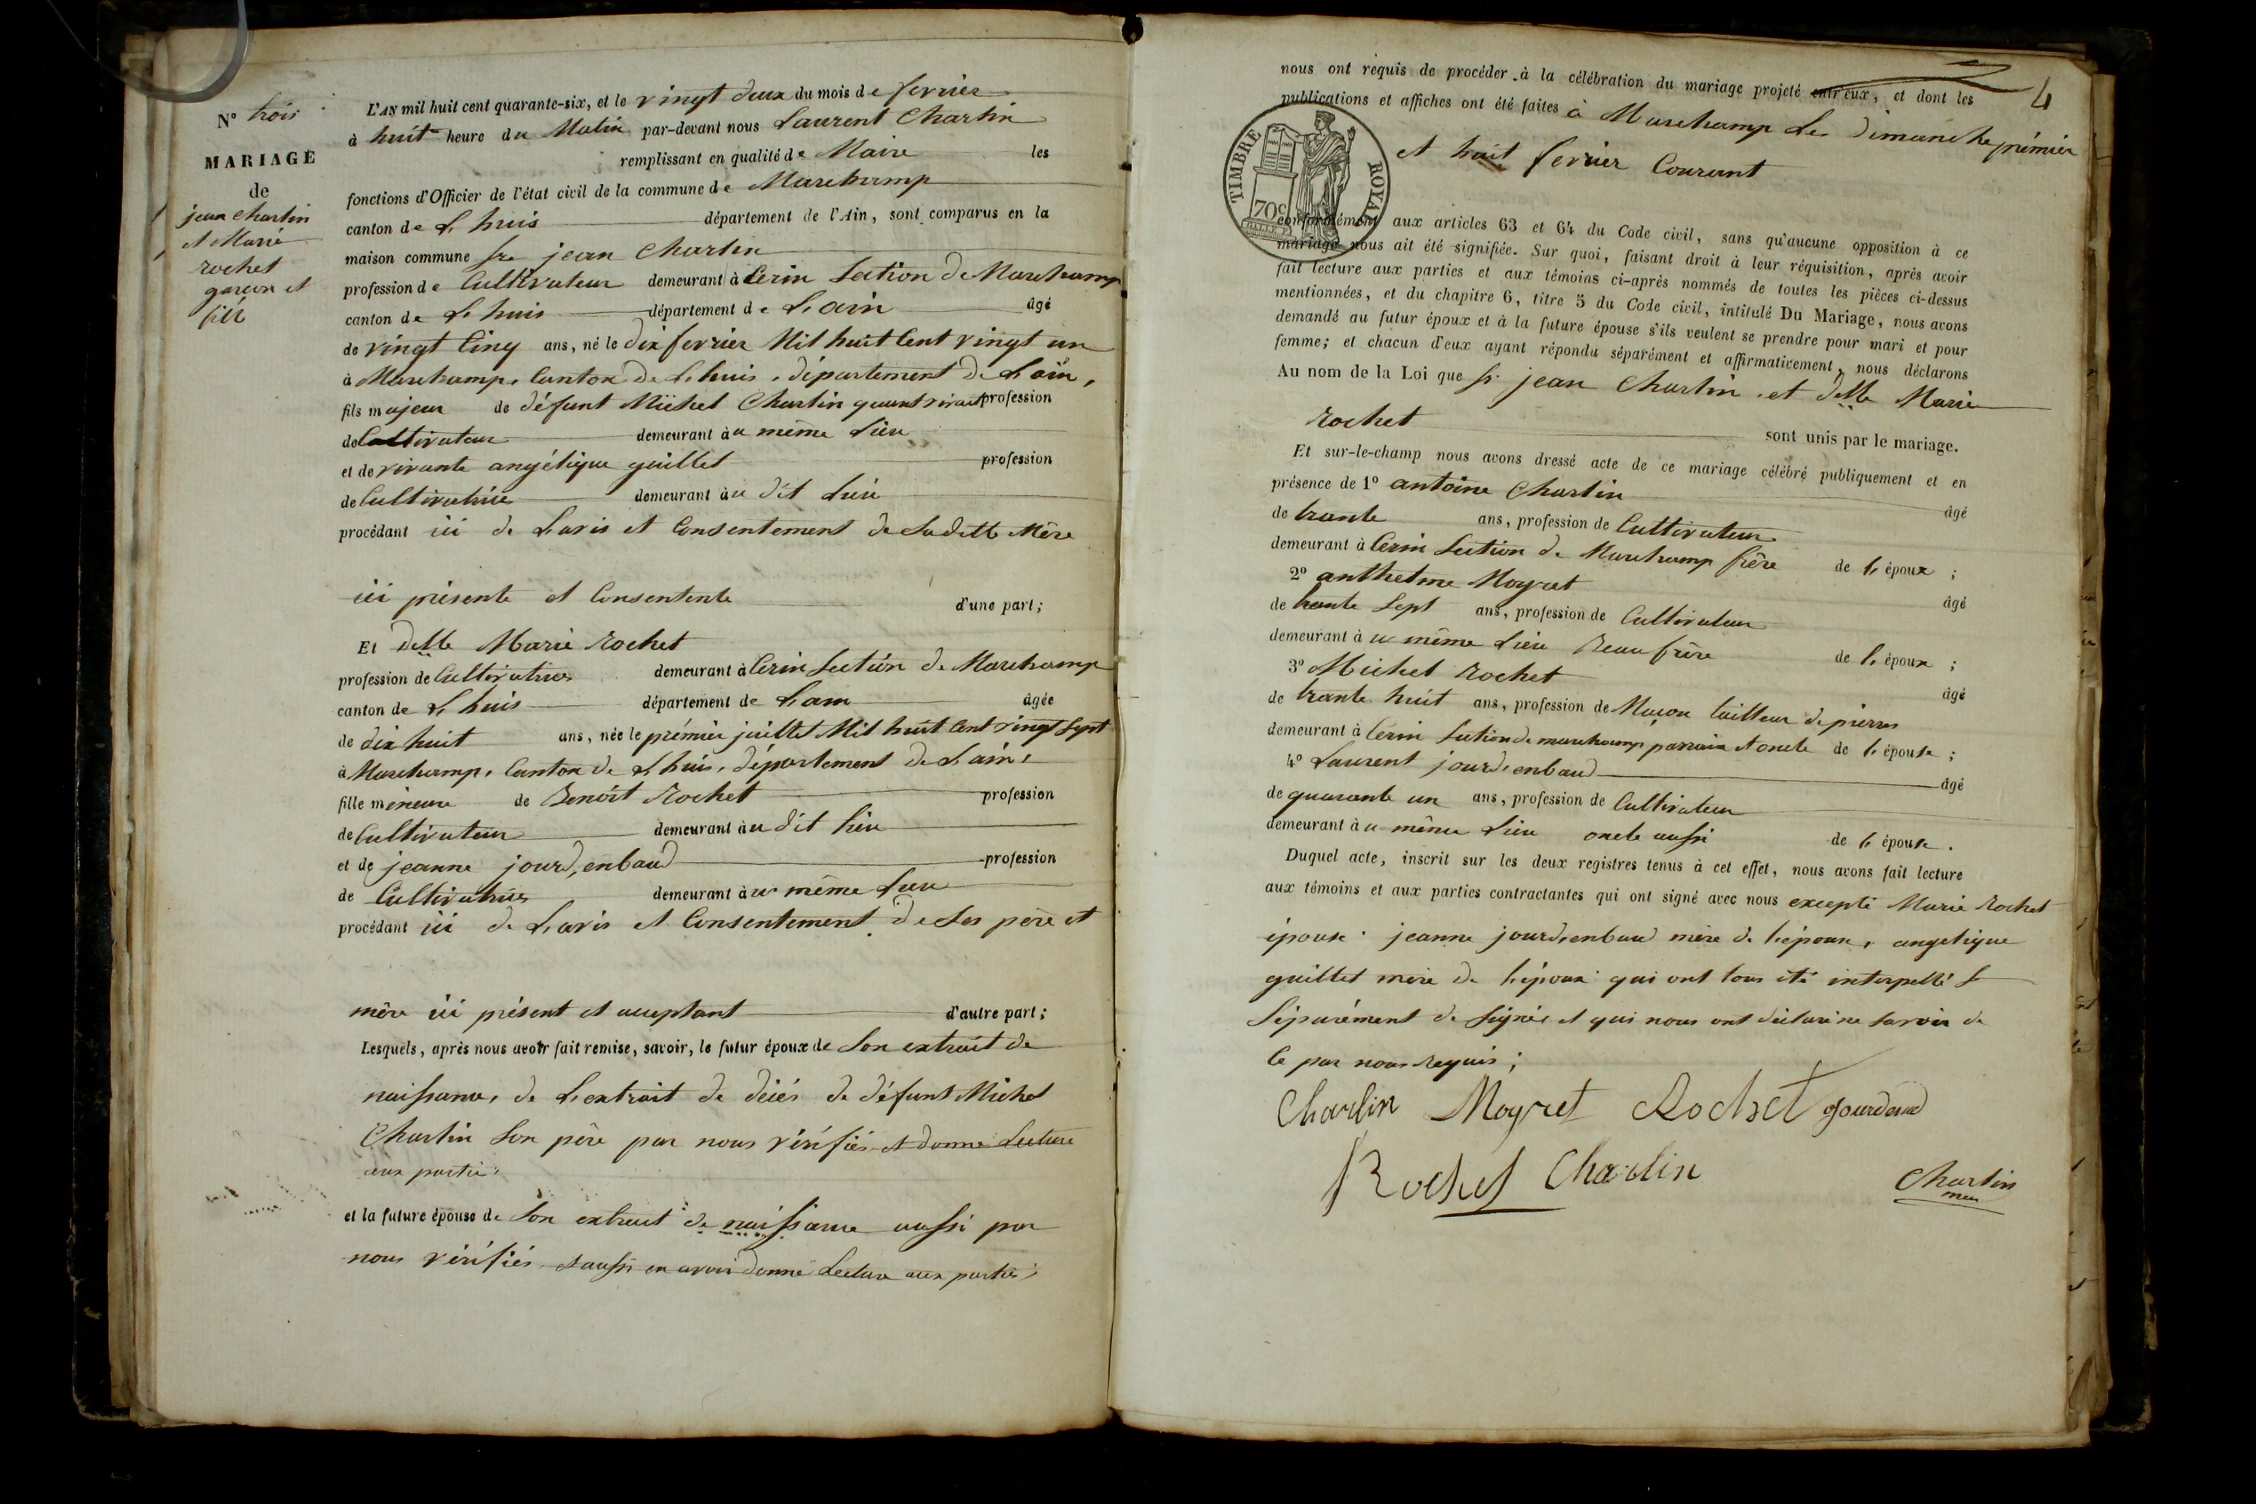 N° trois
MARIAGE
de
jean Charlin
et Marie
rochet
garçon et
fille
L'AN mil huit cent quarante-six, et le vingt deux du mois de fevrier
à huit heure du Matin par-devant nous Laurent Charlin
remplissant en qualité de Maire les
fonctions d'Officier de l'état civil de la commune de Marchamp
canton de L'huis département de l'Ain, sont comparus en la
maison commune sr jean Charlin
profession de Cultivateur demeurant à Cerin Section de Marchamp
canton de L'huis département de L'ain âgé
de vingt Cinq ans, né le dix fevrier Mil huit Cent vingt un
à Marchamp, Canton de L'huis, département de L'ain,
fils majeur de défunt Michel Charlin quant vivait profession
de Cultivateur demeurant au même Lieu
et de vivante angélique guillet profession
de Cultivatrice demeurant au dit Lieu
procédant ici de L'avis et Consentement de Sa ditte Mère
ici présente et Consentente d'une part;
Et delle Marie rochet
profession de Cultivatrice demeurant à Cerin Section de Marchamp
canton de L'huis département de L'ain âgée
de dix huit ans, née le prémier juillet Mil huit Cent vingt Sept
à Marchamp, Canton de L'huis, département de L'ain,
fille mineure de Benoît Rochet profession
de Cultivateur demeurant au dit lieu
et de jeanne jourd,enbaud profession
de Cultivatrice demeurant au même Lieu
procédant ici de L'avis et Consentement de Ses père et
mère ici présent et acceptant d'autre part;
Lesquels, après nous avoir fait remise, savoir, le futur époux de Son extrait de
naissance, de L'extrait de décés de défunt Michel
Charlin Son père par nous vérifiés et donné Lecture
aux partie,
et la future épouse de Son extrait de naissance aussi par
nous vérifiés et aussi en avoir donné Lecture aux parties,
4
nous ont requis de procéder à la célébration du mariage projeté entr'eux, et dont les
publications et affiches ont été faites à Marchamp Les Dimanche prémier
et huit fevrier Courant
TIMBRE ROYAL
70c
conformément aux articles 63 et 64 du Code civil, sans qu'aucune opposition à ce
mariage nous ait été signifiée. Sur quoi, faisant droit à leur réquisition, après avoir
fait lecture aux parties et aux témoins ci-après nommés de toutes les pièces ci-dessus
mentionnées, et du chapitre 6, titre 5 du Code civil, intitulé Du Mariage, nous avons
demandé au futur époux et à la future épouse s'ils veulent se prendre pour mari et pour
femme; et chacun d'eux ayant répondu séparément et affirmativement, nous déclarons
Au nom de la Loi que sr jean Charlin et delle Marie
Rochet sont unis par le mariage.
Et sur-le-champ nous avons dressé acte de ce mariage célébré publiquement et en
présence de 1° antoine Charlin âgé
de trante ans, profession de Cultivateur
demeurant à Cerin Section de Marchamp frère de l'époux ;
2° anthelme Moyret âgé
de trante Sept ans, profession de Cultivateur
demeurant au même Lieu Beau frère de l'époux ;
3° Michel Rochet âgé
de trante huit ans, profession de Maçon tailleur de pierres
demeurant à Cerin Section de marchamp parrain et oncle de l'épouse ;
4° Laurent jourd,enbaud âgé
de quarante un ans, profession de Cultivateur
demeurant au même Lieu oncle aussi de l'épouse .
Duquel acte, inscrit sur les deux registres tenus à cet effet, nous avons fait lecture
aux témoins et aux parties contractantes qui ont signé avec nous excepté Marie Rochet
épouse, jeanne jourd,enbaud mère de l'épouse, angelique
guillet mère de l'époux qui ont tous été interpellés
Séparément de signer et qui nous ont déclaré ne savoir de
Ce par nous requis ;
Charlin Moyret Rochet Jourdand
Rochet Charlin
Charlin